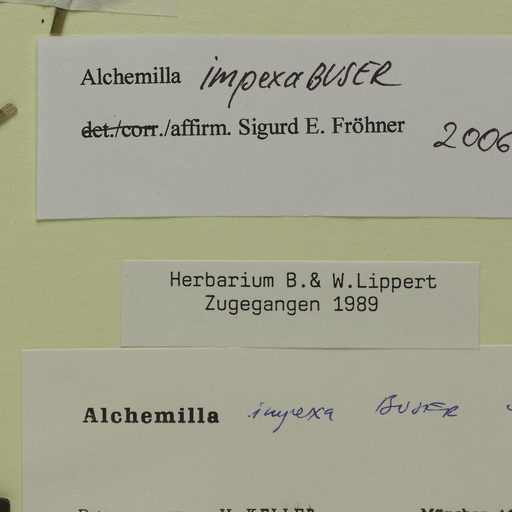 Alchemilla impexa BUSER
det./corr./affirm. Sigurd E. Fröhner 2006
Herbarium B.& W.Lippert
Zugegangen 1989
Alchemilla impexa BUSER